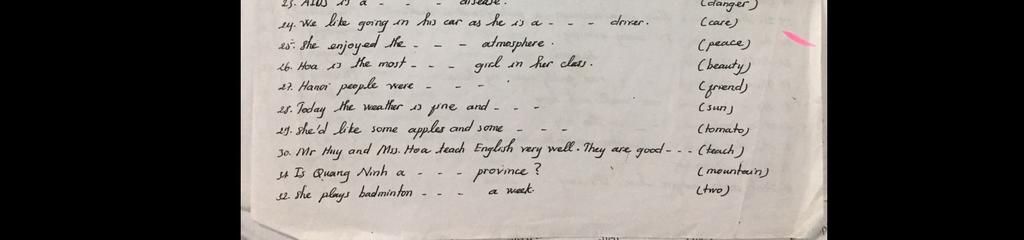 23. AIDS is a - - - disease. (danger)
24. We like going in his car as he is a - - - driver. (care)
25. She enjoyed the - - - atmosphere. (peace)
26. Hoa is the most - - - girl in her class. (beauty)
27. Hanoi people were - - - (friend)
28. Today the weather is fine and - - - (sun)
29. She'd like some apples and some - - - (tomato)
30. Mr Huy and Mrs. Hoa teach English very well. They are good - - - (teach)
31. Is Quang Ninh a - - - province? (mountain)
32. She plays badminton - - - a week. (two)